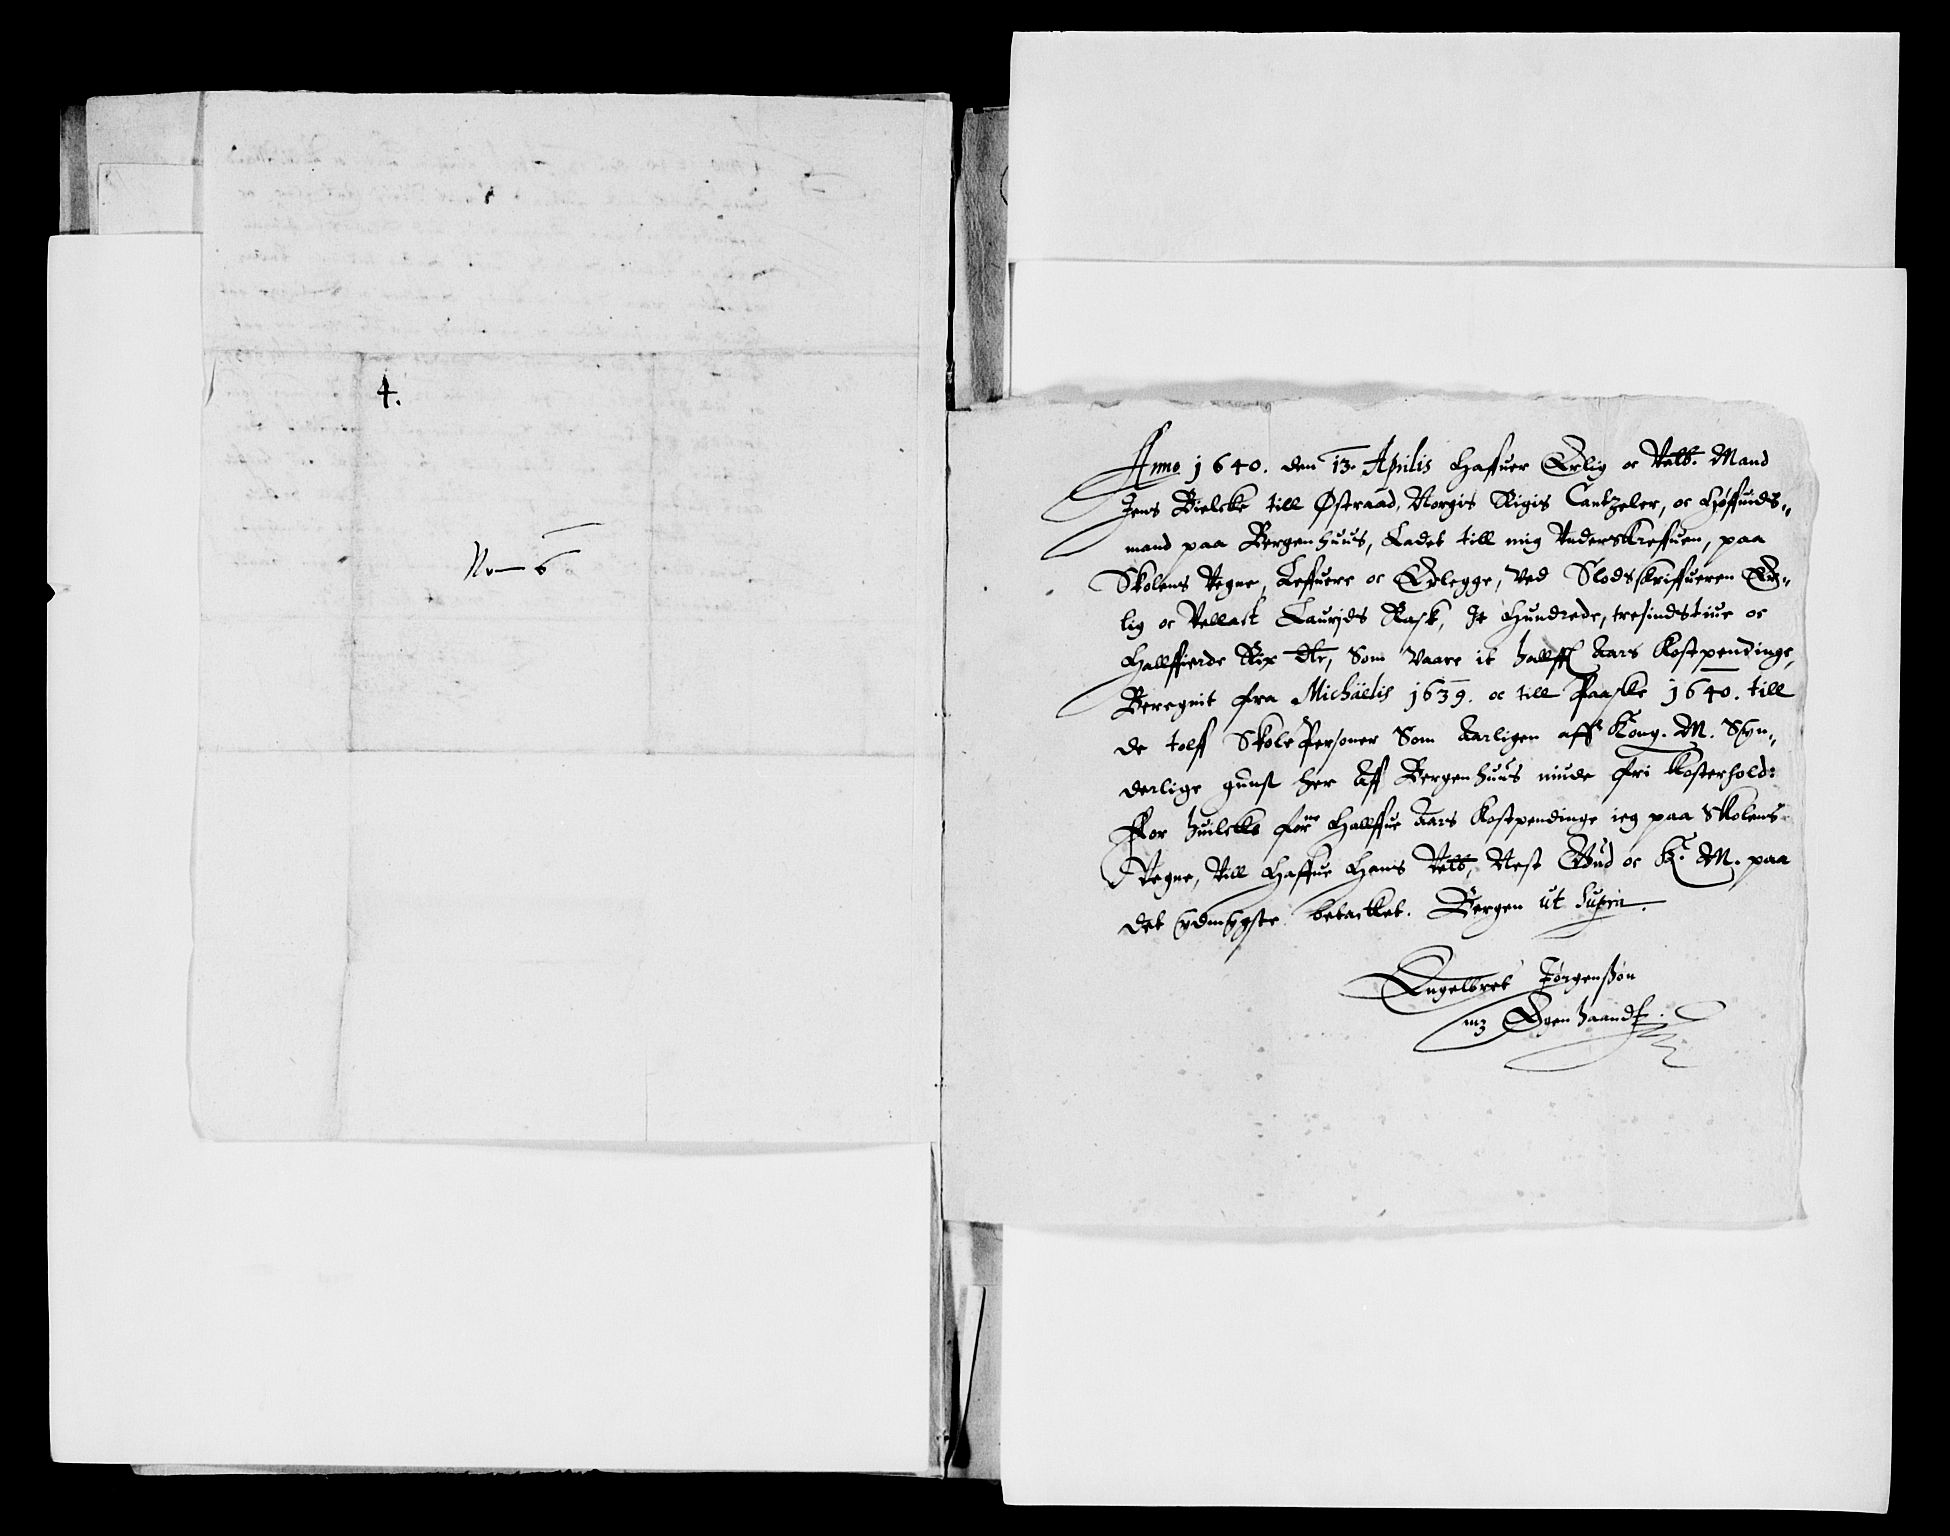 4.
No 6
Anno 1640. den 13. Aprilis Haffuer Erlig oc Velb. Mand
Jens Bielcke till Østraad, Norgis Rigis Cantzeler, oc Høffuids„
mand paa Bergenhuus, Ladet till mig Vnderskreffuen, paa
Skolens Vegne, Leffuere oc Erlegge, Ved Slodsskriffueren Er„
lig oc Vellact Lauritds Rask, It Hundrede, tresindstiue oc
Hallffierde Rix Dlr, Som Vaare it hallfft Aars Kostpendinge,
Beregnit fra Michaëlis 1639. oc till Paaske 1640. till
de tolff Skole Personer Som Aarligen aff Kong. M. Syn„
derlige gunst her Aff Bergenhuus niude fri kosterhold:
For huilcke forne Hallffue Aars Kostpendinge ieg paa Skolens
Vegne, Vill Haffue Hans Velb, Nest Gud oc K. M. paa
det ydmygste betacket. Bergen ut supra.
Engelbret Jørgensøn
mz Egen haand